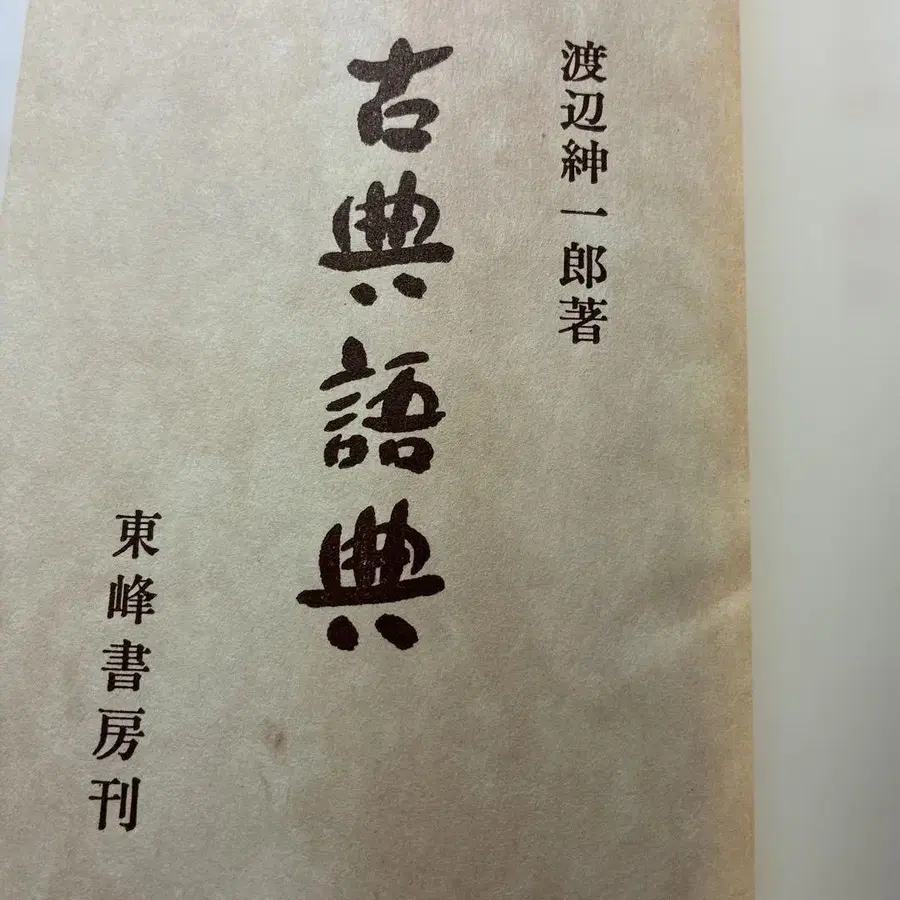 渡辺紳一郎著
古典語典
東峰書房刊